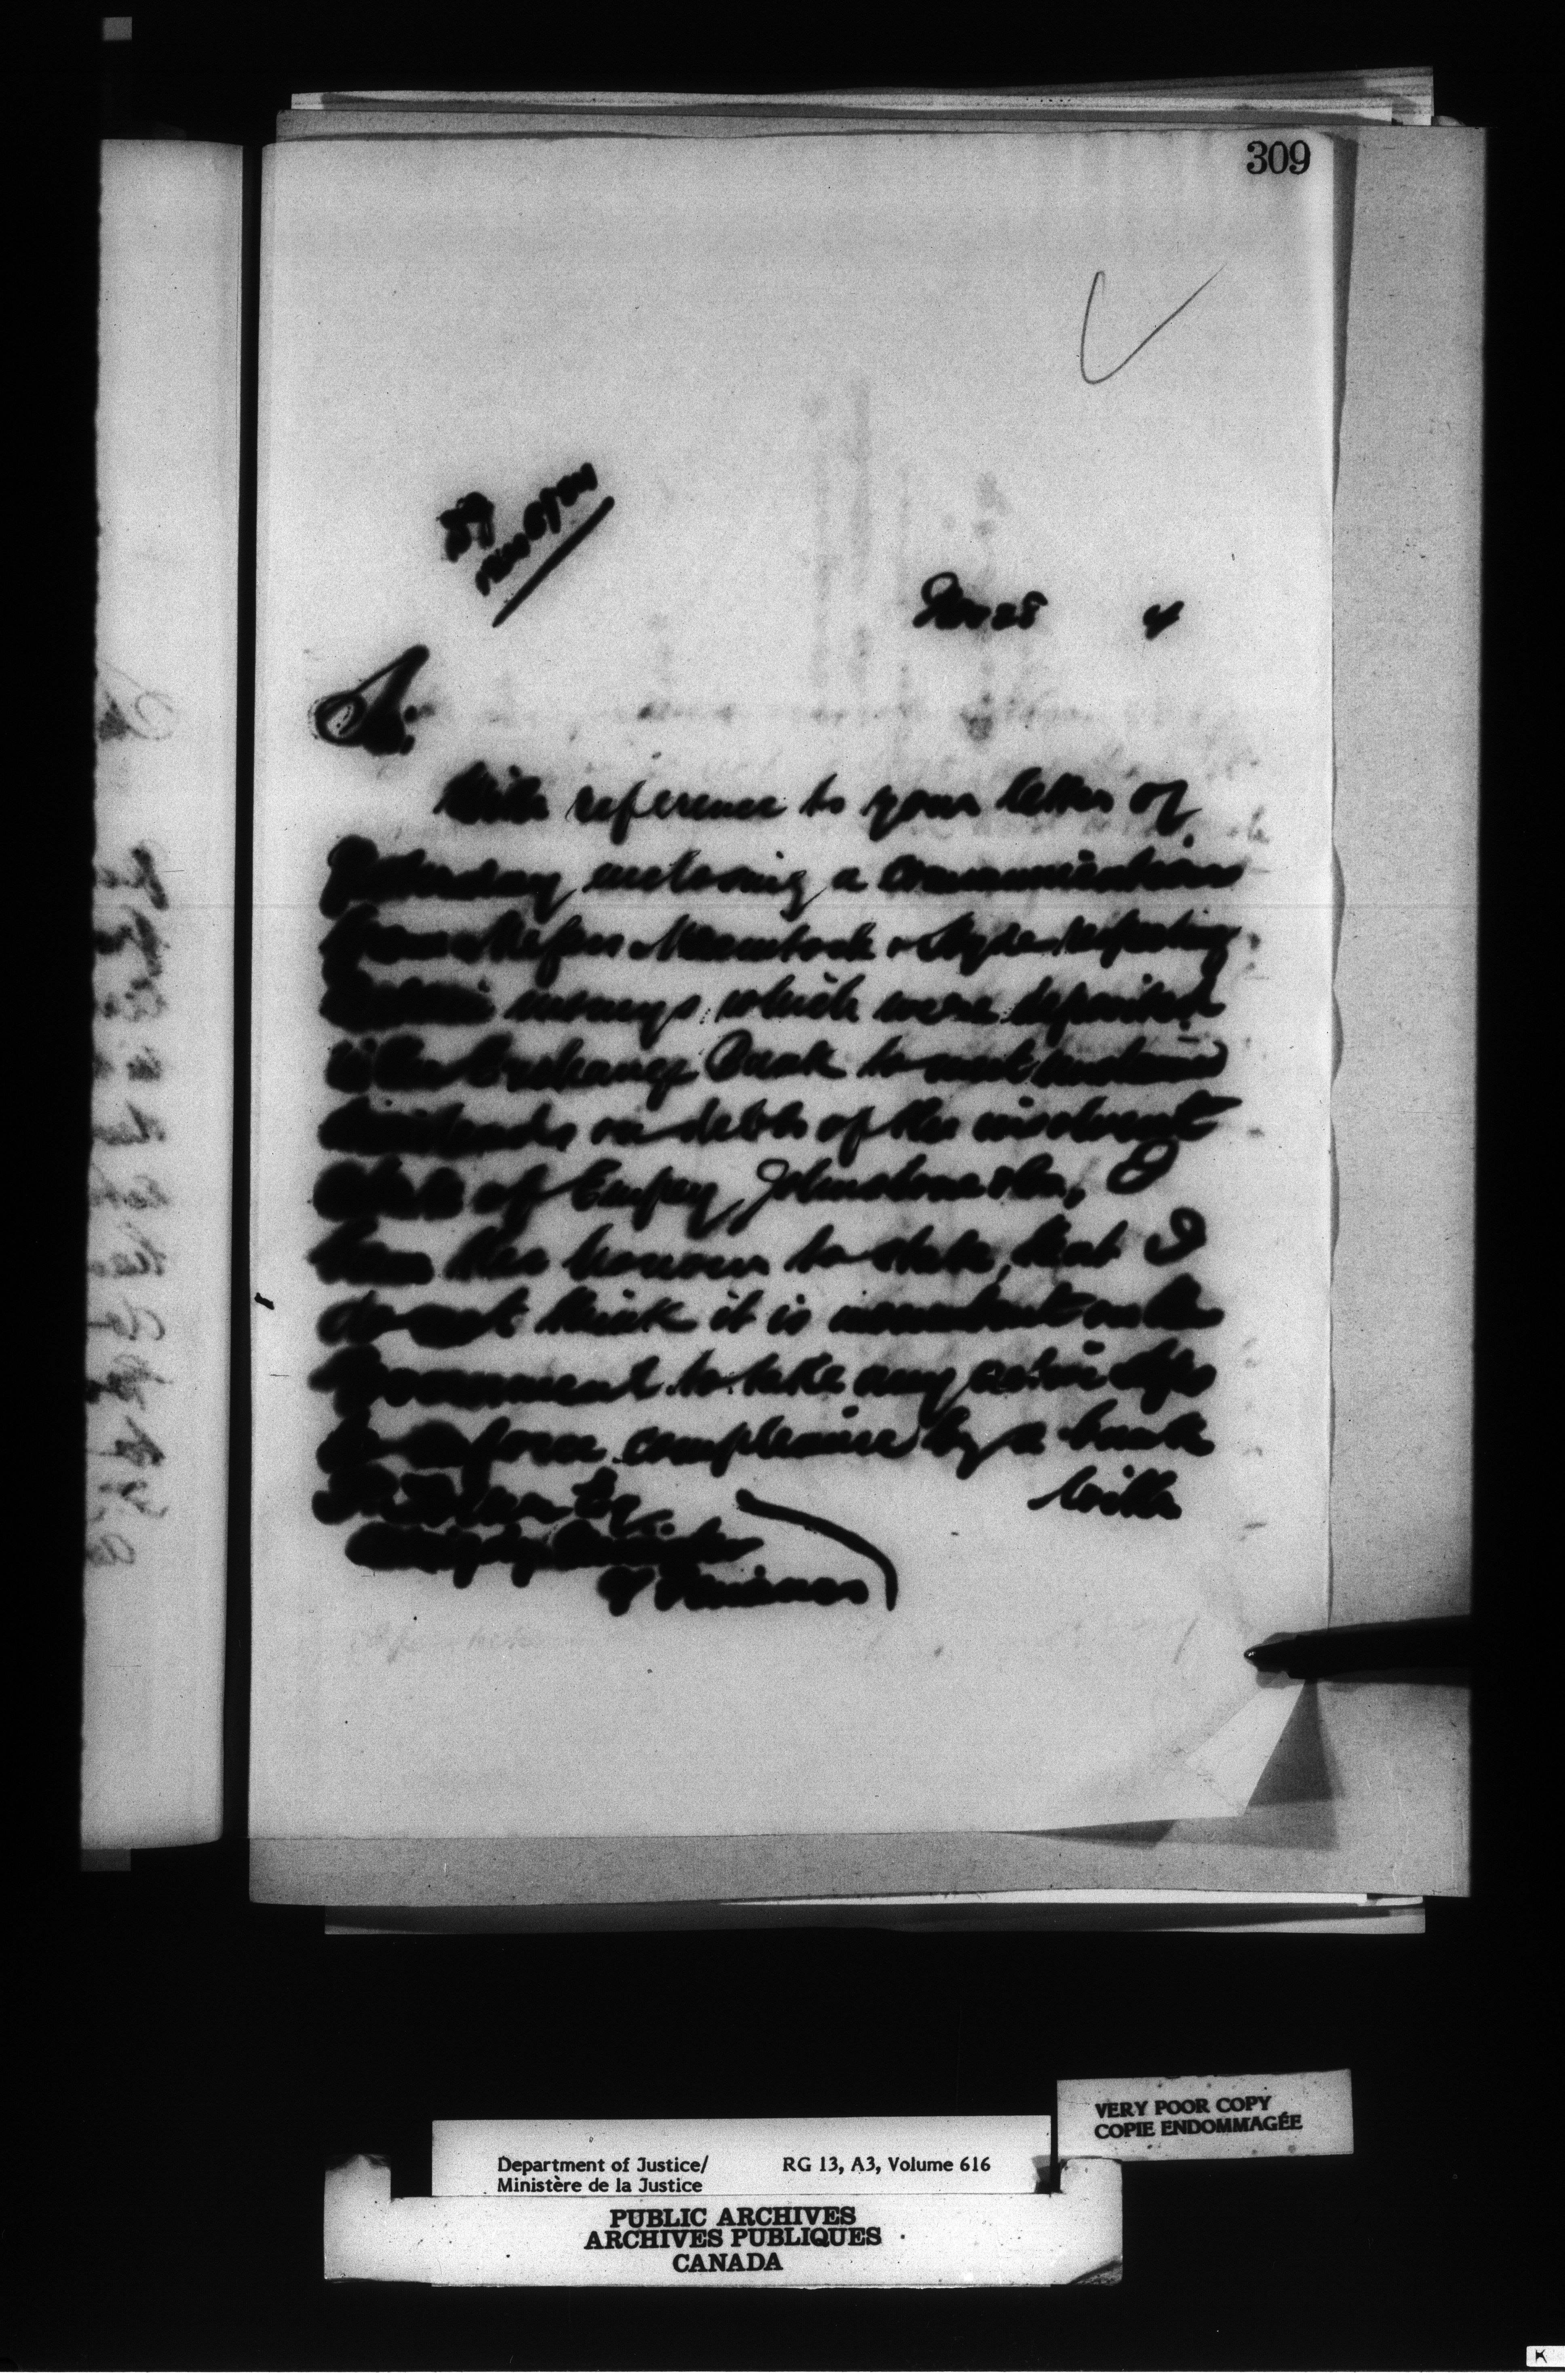 309
Nov 28 4
Sir
With reference to your letter of
yesterday enclosing a communication
from Messrs Macintosh & Hyde respecting
certain moneys which were deposited
in the Exchange Bank to meet
dividends on debts of the insolvent
estate of Empey, Johnstone & Co., I
have the honour to state that I
do not think it is incumbent on the
Government to take any active steps
to enforce compliance by a bank
with
Esq.
Deputy Minister
of Finance
VERY POOR COPY
COPIE ENDOMMAGÉE
Department of Justice/ RG 13, A3, Volume 616
Ministère de la Justice
PUBLIC ARCHIVES
ARCHIVES PUBLIQUES
CANADA
K